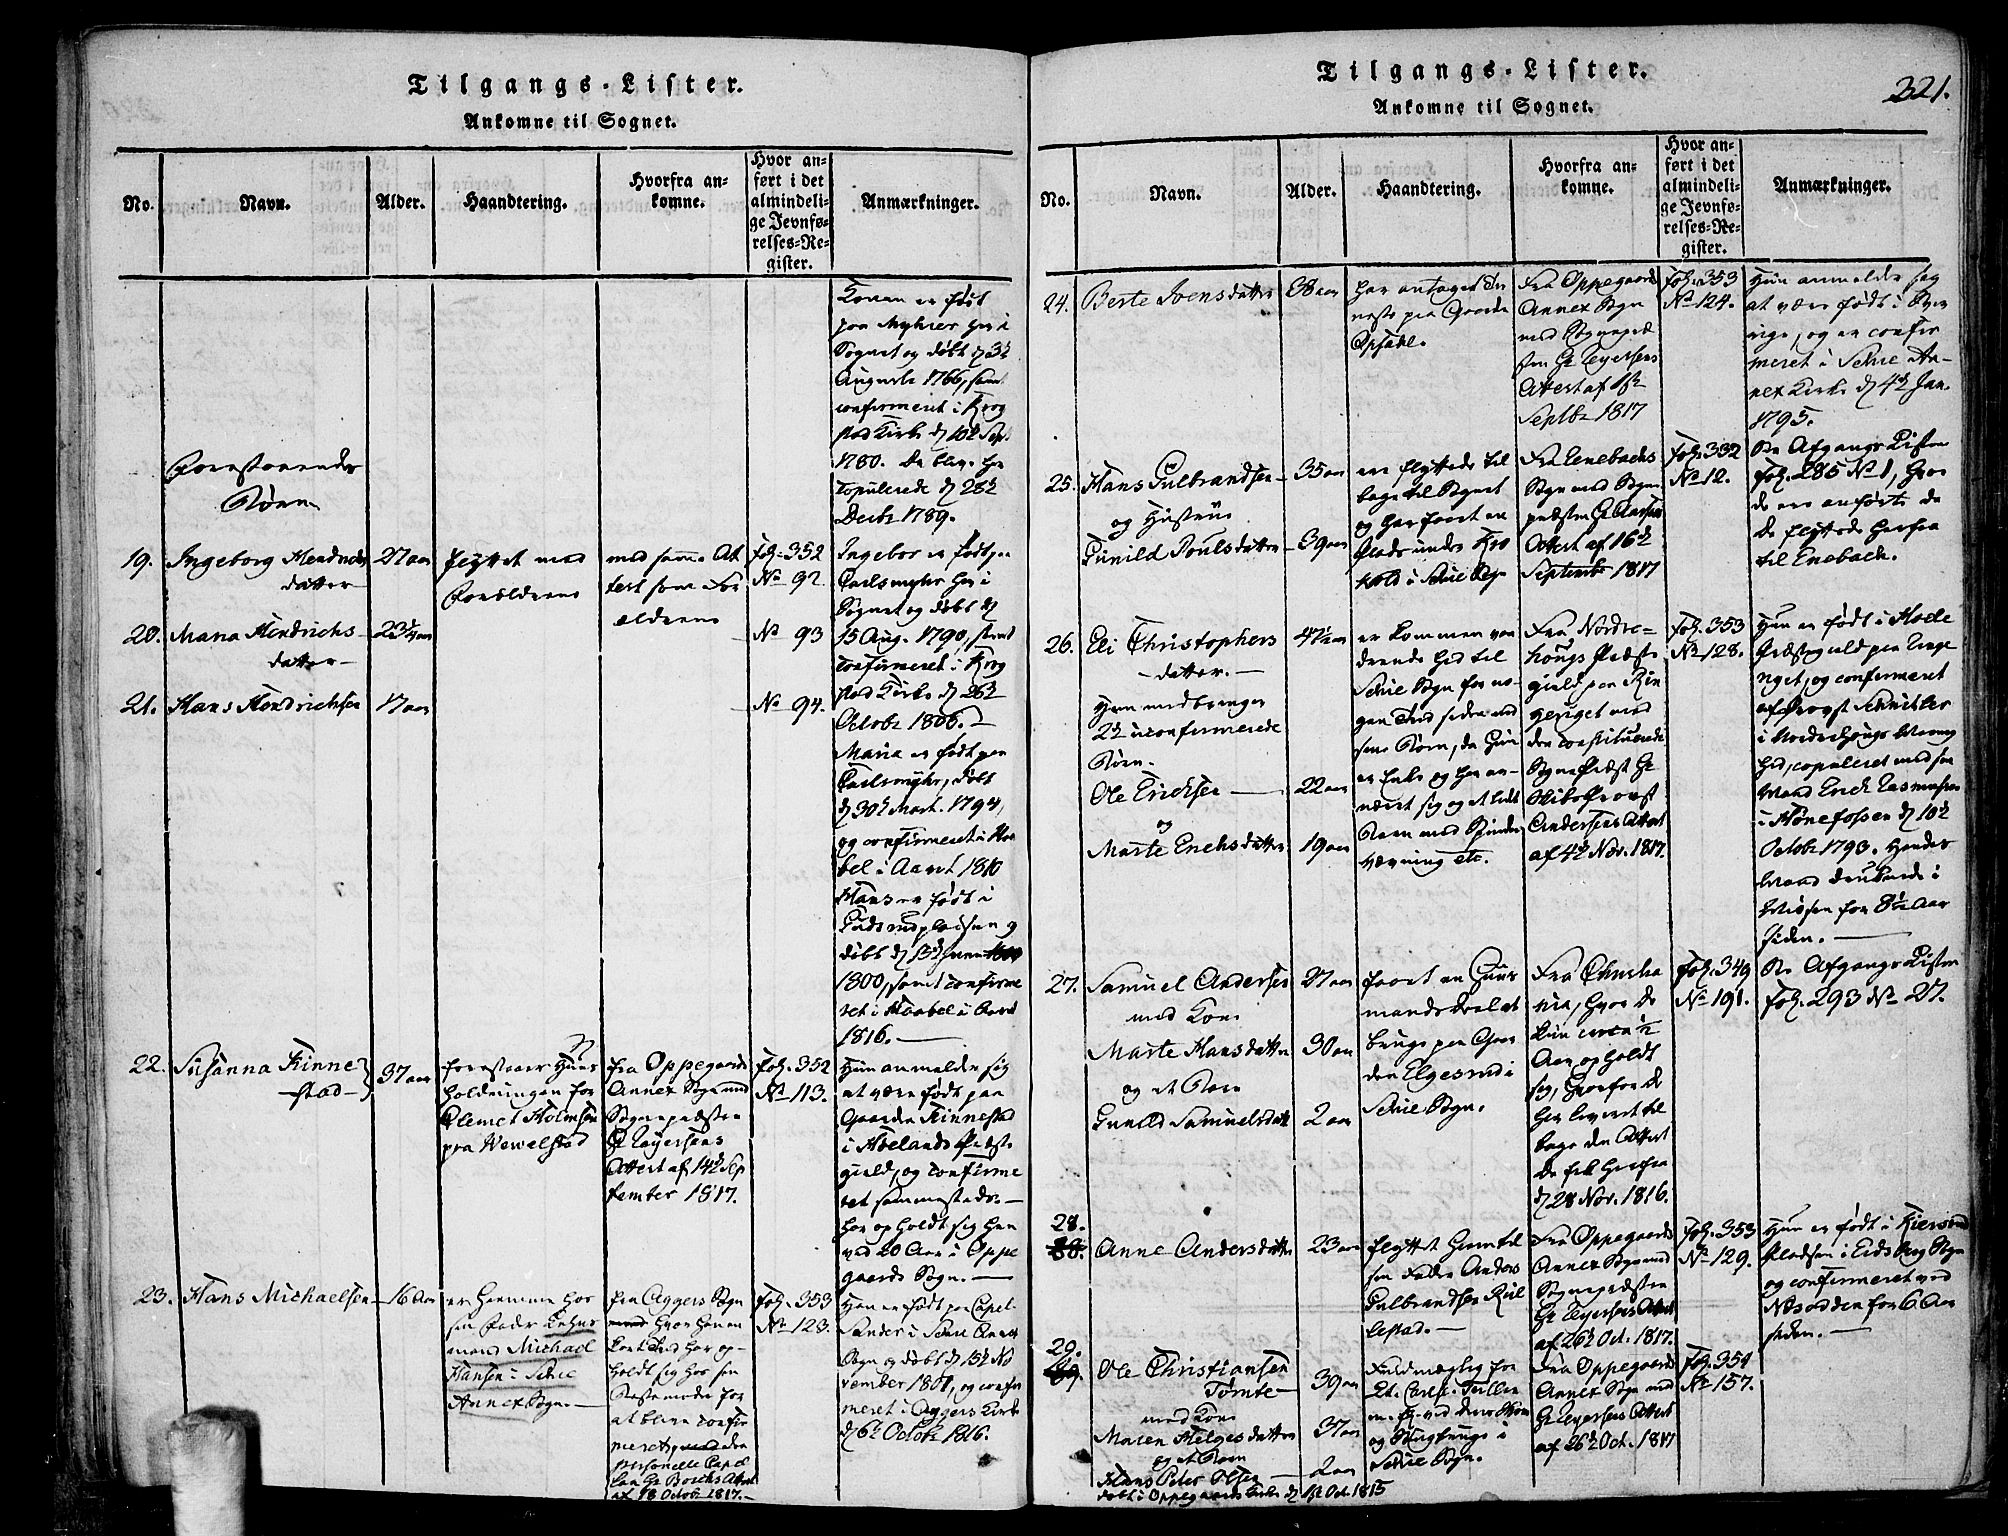 Tilgangs-Lister.
Ankomne til Sognet.
No.
Navn.
Alder.
Haandtering.
Hvorfra an-
komne.
Hvor an-
ført i det
almindeli-
ge Jevnfø-
relses-Re-
gister.
Anmærkninger.
Konen er født
paa Myhrer her i
Sognet og døbt d 3die
Augusti 1766, samt
confirmeret i Krog
stad Kirke d 10de Sept
1780. De blev her
copulerede d 28de
Decbr 1789.
Foranstaaendes
Børn
19. Ingeborg Hendrichs
datter
27 aar
flyttet med
Forældrene
med samme At
test som For
ældrene
fol. 352
No 92.
Ingebor er født paa
Carlsmyhr her i
Sognet og døbt d
15 Aug. 1790, samt
confirmeret i Krog
stad Kirke d 26de
Octobr 1806.
20. Maria Hendrichs-
datter
23¼ aar
No 93
21. Hans Hendrichsen
17 aar
No 94.
Maria er født paa
Carlsmyhr, døbt
d 30te Mart. 1794,
og confirmeret i Haa
bel i Aaret 1810
Hans er født i
døbt d 13de
1800, samt confirme
ret i Haabel i Aaret
1816.
22. Susanna Finne
stad
37 aar
forestaaer Huus
holdningen for
Clemet Holmsen
paa Wewelstad
fra Oppegaards
Annex Sogn med
Sognepræsten
Hr Leyersens
Attest af 14de Sep
tember 1817.
fol. 352
No 113.
Hun anmelder sig
at være født paa
Gaarden Finnestad
i Høelands Præste
gield, og confirme
ret sammesteds.
har opholdt sig hen
ved 20 Aar i Oppe
gaards Sogn.
23. Hans Michaelsen
16 Aar
er hiemme hos
sin Fader
mand Michael
Hansen i Schie
Annex Sogn.
fra Aggers Sogn
hvor han en
kort Tid har op-
holdt sig hos sin
Bestemoder for
at blive confir
meret, med den
personelle Capel
lan Hr Borchs Attest
af 18 Octobr 1817.
fol. 353
No 123.
Han er født paa Capel-
i Schie Annex
Sogn og døbt d 15de No
vember 1801, og confir
meret i Aggers Kirke
d 6te Octobr 1816.
Tilgangs-Lister.
Ankomne til Sognet.
321.
No.
Navn.
Alder.
Haandtering.
Hvorfra an-
komne.
Hvor an-
ført i det
almindeli-
ge Jevnfø-
relses-Re-
gister.
Anmærkninger.
24. Berte Svensdatter
38 aar
har antaget Tie
neste paa Gaarden
Opsahl.
Fra Oppegaards
Annex Sogn
med Sognepræ
sten Hr Leyersens
Attest af 1ste
Septbr 1817
fol. 353
No 124.
Hun anmelder sig
at være født i Sver
rige, og er confir
meret i Schie An-
nex Kirke d 4de Jan.
1795.
25. Hans Gulbrandsen
og Hustrue
Gunild Poulsdatter
35 aar
39 aar
ere flyttede til
bage til Sognet
og har faaet en
Plads under Kro
kold i Schie Sogn
Fra Enebacks
Sogn med Sogne
præsten Hr
Attest af 16de
Septembr 1817
fol. 332
No 12.
See Afgangs Listen
fol. 285 No 1, hvor
de ere anførte da
de flyttede herfra
til Eneback.
26. Eli Christophers
datter.
Hun medbringer
2de uconfirmerede
Børn.
Ole Erichsen
og
Marte Erichsdatter
47½ aar
22 aar
19 aar
er kommen van
drende hid til
Schie Sogn for no
gen Tid siden med
sine Børn, da hun
er Enke og har er-
næret sig og et lidet
Barn med Spinden
vævning etc.
Fra Nordre-
hougs Præste
gield paa Rin
geriget med
den constituerede
Sogne Præst Hr
Andersens Attest
af 4de Nov. 1817.
fol. 353
No 128.
Hun er født i Hole
Præstegield paa
og confirmeret
af Provst Schnitler
i Norderhougs
copuleret med sin
Mand Erich Rasmusen
i Hønefossen d 10de
Octobr 1793. Hendes
Mand druknede i
for 8½ Aar
siden.
27. Samuel Andersen
med Kone
Marte Hansdatter
og et Barn
Gunild Samuelsdatter
27 aar
30 aar
2 aar
faaet en Huus
mandsdeel at
bruge paa Gaar
den Elgesrud i
Schie Sogn.
Fra Christia
nia, hvor de
kun circa ½
Aar opholdt
sig, hvorfor de
her leveret til
bage den Attest
de fik herfra
d 28 Nov. 1816.
fol. 349
No 191.
See Afgangs Listen
fol. 293 No 27.
28. Anne Andersdatter
23 aar
flyttet hiem til
sin Fader Anders
Gulbrandsen
Fra Oppegaards
Annex Sogn med
Sognepræsten
Hr Leyersens Attest
af 26de Oct. 1817.
fol. 353
No 129.
Hun er født i
Pladsen i Eidsberg Sogn
og confirmeret ved
Næsodden for 6 Aar
siden.
29. Ole Christiansen
Tomte
med Kone
Maren Helgesdatter
og et Barn
Hans Peter Olsen
døbt i Oppegaards Kirke d 1ste Oct. 1815
39 aar
37 aar
2 aar
Fuldmægtig for
ved dens Skov
og Saugbrug i
Schie Sogn.
Fra Oppegaards
Annex Sogn med
Hr Leyersens Attest
af 26de Oct. 1817
fol. 354
No 157.